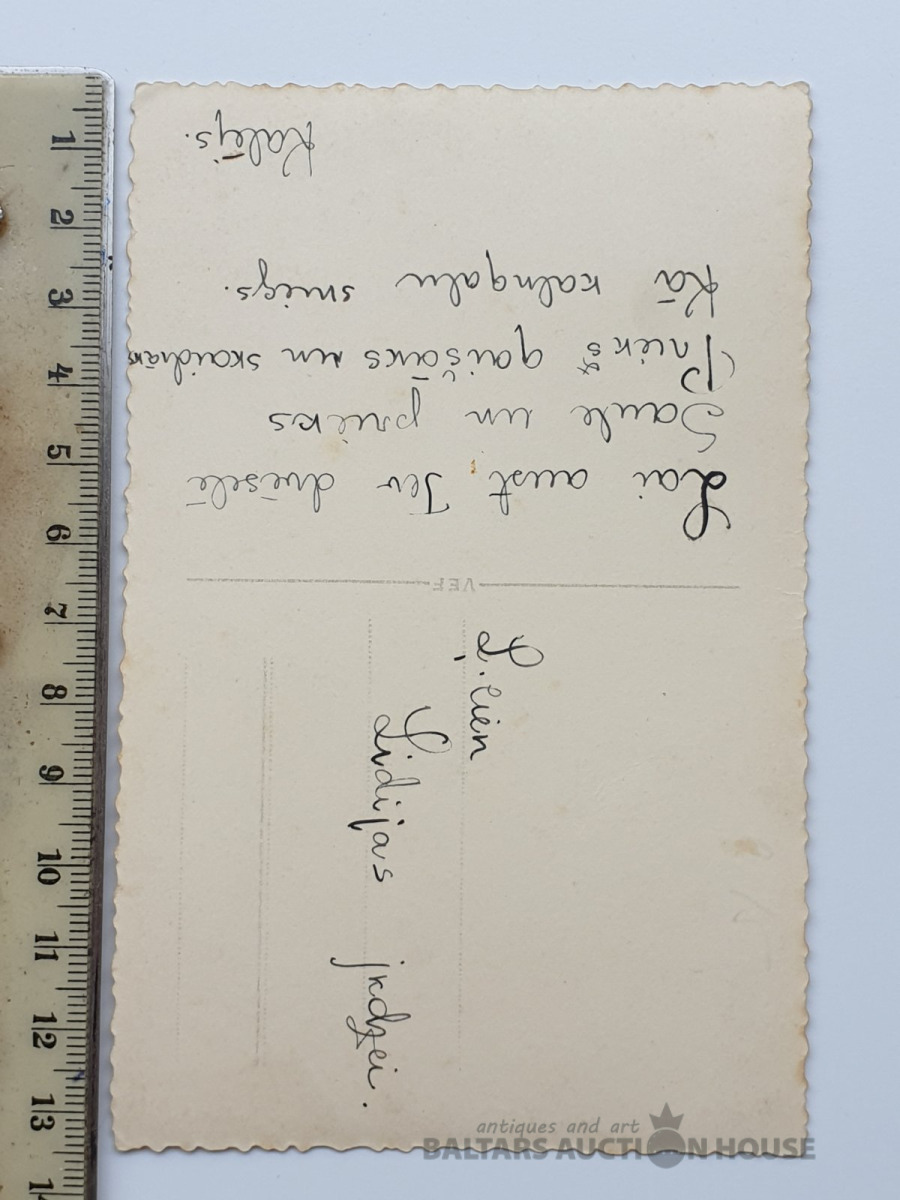 Lai aust Tev dvēselē
Saule un prieks
Prieks gaišāks un skaidrāks
Kā kalngalu sniegs.
Kalējs.
VEF
L. cien
Lidijas jkdzei.
1
2
3
4
5
6
7
8
9
10
11
12
13
antiques and art
BALTARS AUCTION HOUSE